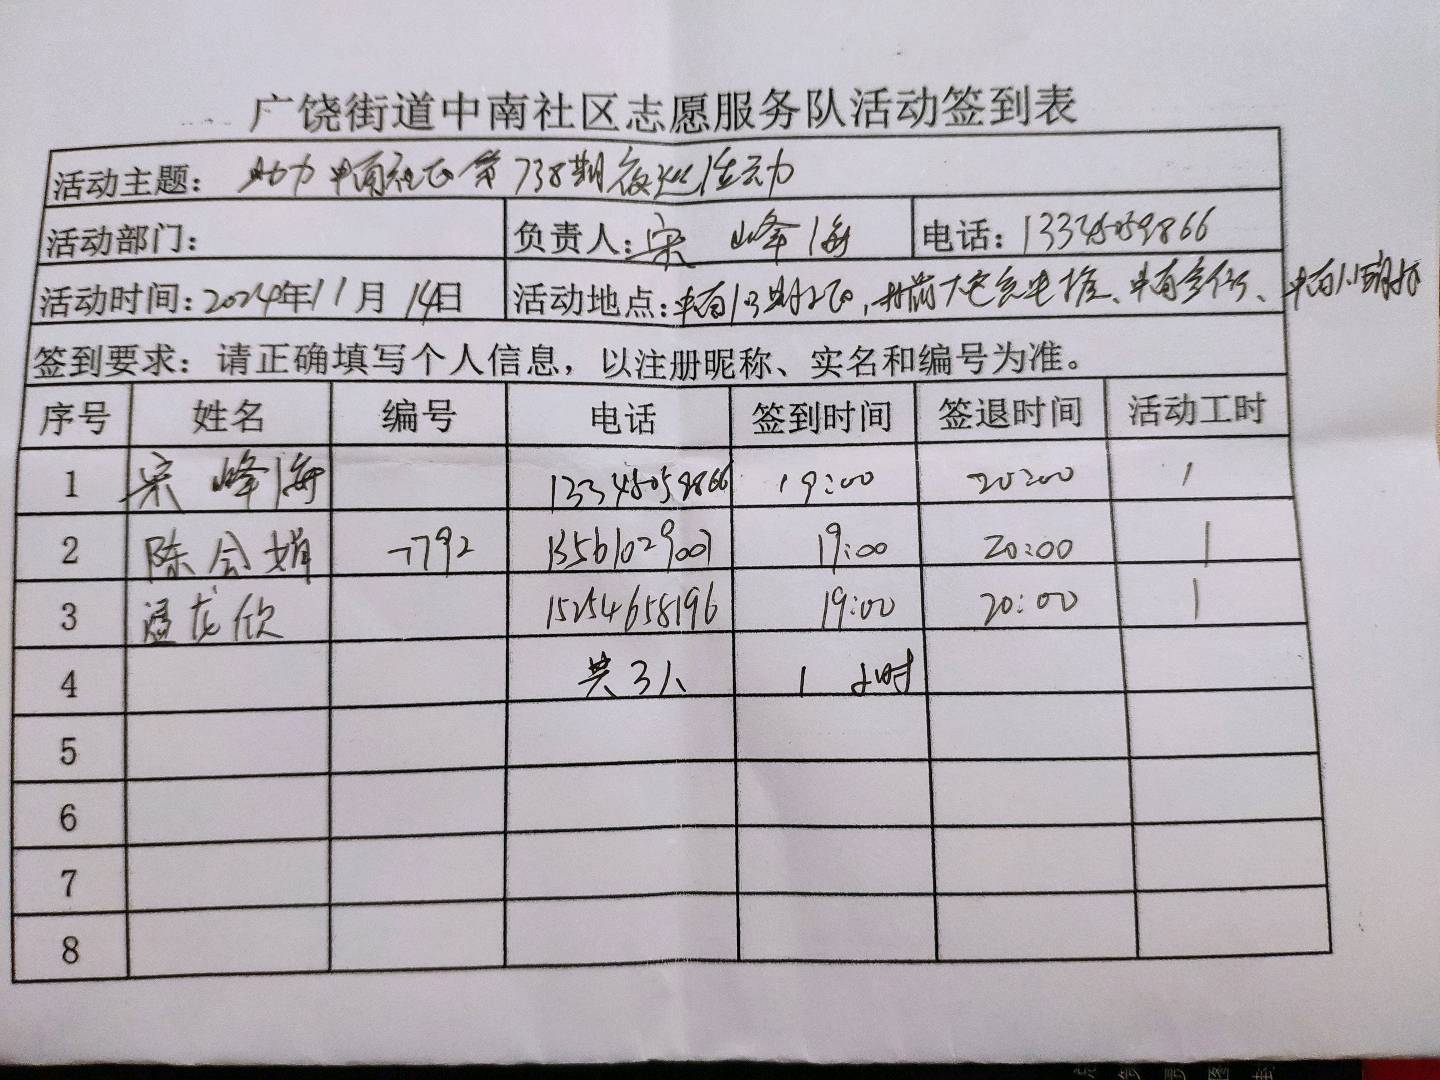 广饶街道中南社区志愿服务队活动签到表
活动主题：助力中南社区第738期夜巡活动
活动部门： 负责人：宋峰海 电话：13345059866
活动时间：2024年11月14日 活动地点：中南
签到要求：请正确填写个人信息，以注册昵称、实名和编号为准。
序号 姓名 编号 电话 签到时间 签退时间 活动工时
1 宋峰海 13345059866 19:00 20:00 1
2 陈会娟 7792 13561029007 19:00 20:00 1
3 龙欣 15254658196 19:00 20:00 1
4 共3人 1小时
5
6
7
8